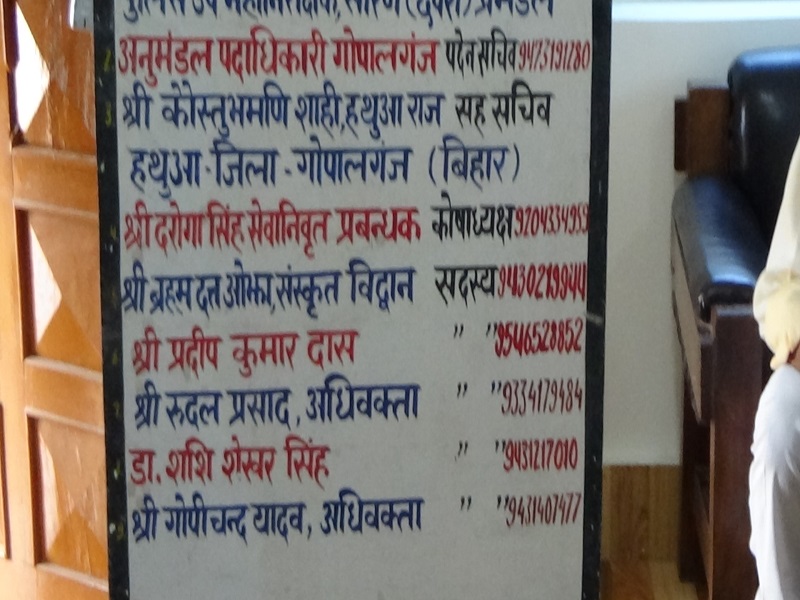 पुलिस उप महानिरीक्षक, सारण (छपरा) प्रमंडल
अनुमंडल पदाधिकारी गोपालगंज पदेन सचिव 9473191280
श्री कौस्तुभमणि शाही, हथुआ राज सह सचिव
हथुआ-जिला-गोपालगंज (बिहार)
श्री दरोगा सिंह सेवानिवृत प्रबन्धक कोषाध्यक्ष 9204334959
श्री ब्रहम दत्त ओझा, संस्कृत विद्वान सदस्य 9430219944
श्री प्रदीप कुमार दास " " 9546528852
श्री रुदल प्रसाद, अधिवक्ता " " 9334179484
डा. शशि शेखर सिंह " " 9431217010
श्री गोपीचन्द यादव, अधिवक्ता " " 9431407477